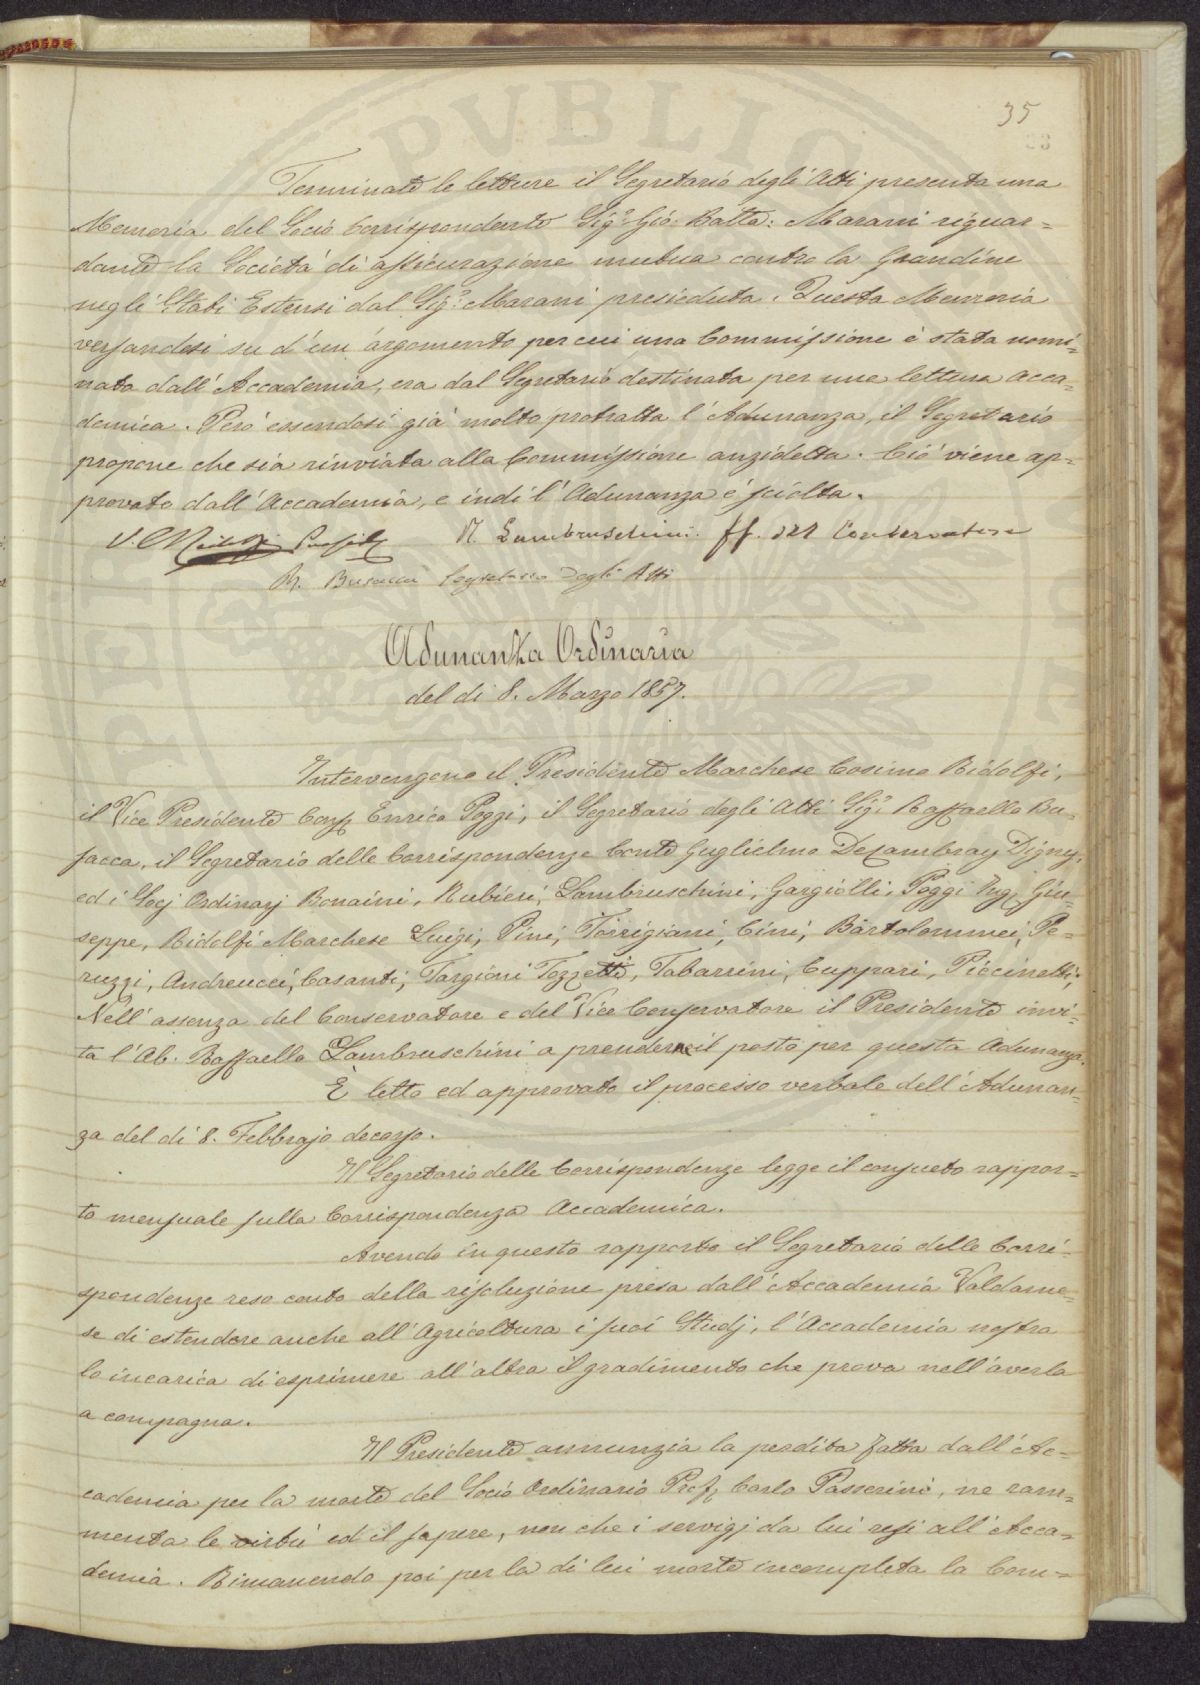 35
Terminate le letture il Segretario degli Atti presenta una
Memoria del Socio Corrispondente Sigr. Gio: Batta: Marani riguar=
dante la Società di assicurazione mutua contro la Grandine
negli Stati Estensi dal Sigr. Marani presieduta. Questa Memoria
versandosi su d'un argomento per cui una Commissione è stata nomi=
nata dall'Accademia, era dal Segretario destinata per una lettura Acca=
demica. Però essendosi già molto protratta l'Adunanza, il Segretario
propone che sia rinviata alla Commissione anzidetta. Ciò viene ap=
provato dall'Accademia, e indi l'Adunanza è sciolta.
R. Lambruschini ff. del Conservatore
R. Busacca Segretario degli Atti
Adunanza Ordinaria
del di 8. Marzo 1857.
Intervengono il Presidente Marchese Cosimo Ridolfi,
il Vice Presidente Enrico Poggi, il Segretario degli Atti Sigr. Raffaello Bu=
sacca, il Segretario delle Corrispondenze Conte Guglielmo Decambray Digny,
ed i Socj Ordinarj Bonaini, Rubieri, Lambruschini, Gargiolli, Poggi Ing. Giu=
seppe, Ridolfi Marchese Luigi, Pini, Torrigiani, Cini, Bartolommei, Pe=
ruzzi, Andreucci, Casanti, Targioni Tozzetti, Tabarrini, Cuppari, Piccinetti;
Nell'assenza del Conservatore e del Vice Conservatore il Presidente invi=
ta l'Ab. Raffaello Lambruschini a prenderne il posto per questa Adunanza.
È letto ed approvato il processo verbale dell'Adunan=
za del di 8. Febbrajo decorso.
Il Segretario delle Corrispondenze legge il consueto rappor=
to mensuale sulla Corrispondenza Accademica.
Avendo in questo rapporto il Segretario delle Corri=
spondenze reso conto della risoluzione presa dall'Accademia Valdarne=
se di estendere anche all'Agricoltura i suoi Studj, l'Accademia nostra
lo incarica di esprimere all'altra il gradimento che prova nell'averla
a compagna.
Il Presidente annunzia la perdita fatta dall'Ac=
cademia per la morte del Socio Ordinario Prof. Carlo Passerini, ne ram=
menta le virtù ed il sapere, non che i servigj da lui resi all'Acca=
demia. Rimanendo poi per la di lui morte incompleta la Com=